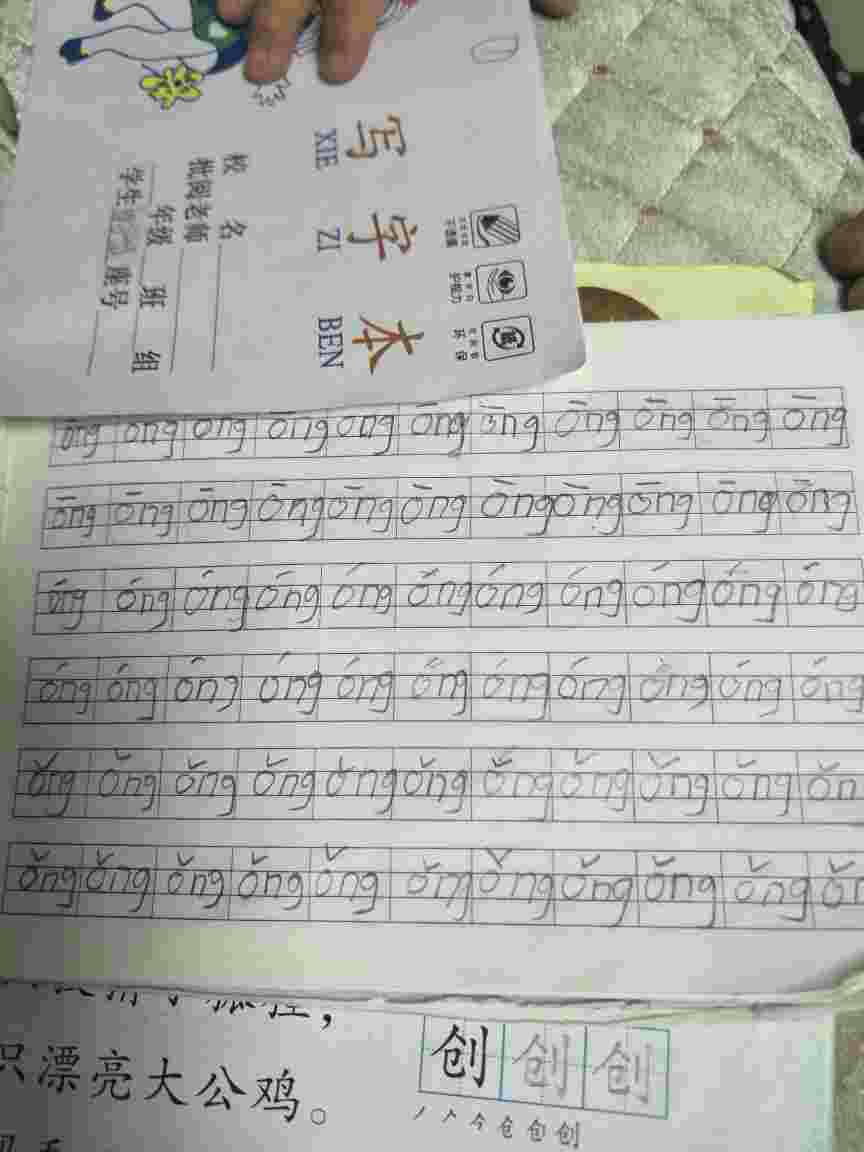 写字本
XIE ZI BEN
校名
批阅老师
年级 班 组
学生 账号
不透墨
护视力
环保
ōng ōng ōng ōng ōng ōng ōng ōng ōng ōng ōng
ōng ōng ōng ōng ōng ōng ōng ōng ōng ōng ōng
óng óng óng óng óng óng óng óng óng óng óng
óng óng óng óng óng óng óng óng óng óng óng
ǒng ǒng ǒng ǒng ǒng ǒng ǒng ǒng ǒng ǒng ǒn
ǒng ǒng ǒng ǒng ǒng ǒng ǒng ǒng ǒng ǒng ǒ
只漂亮大公鸡。
创 创 创